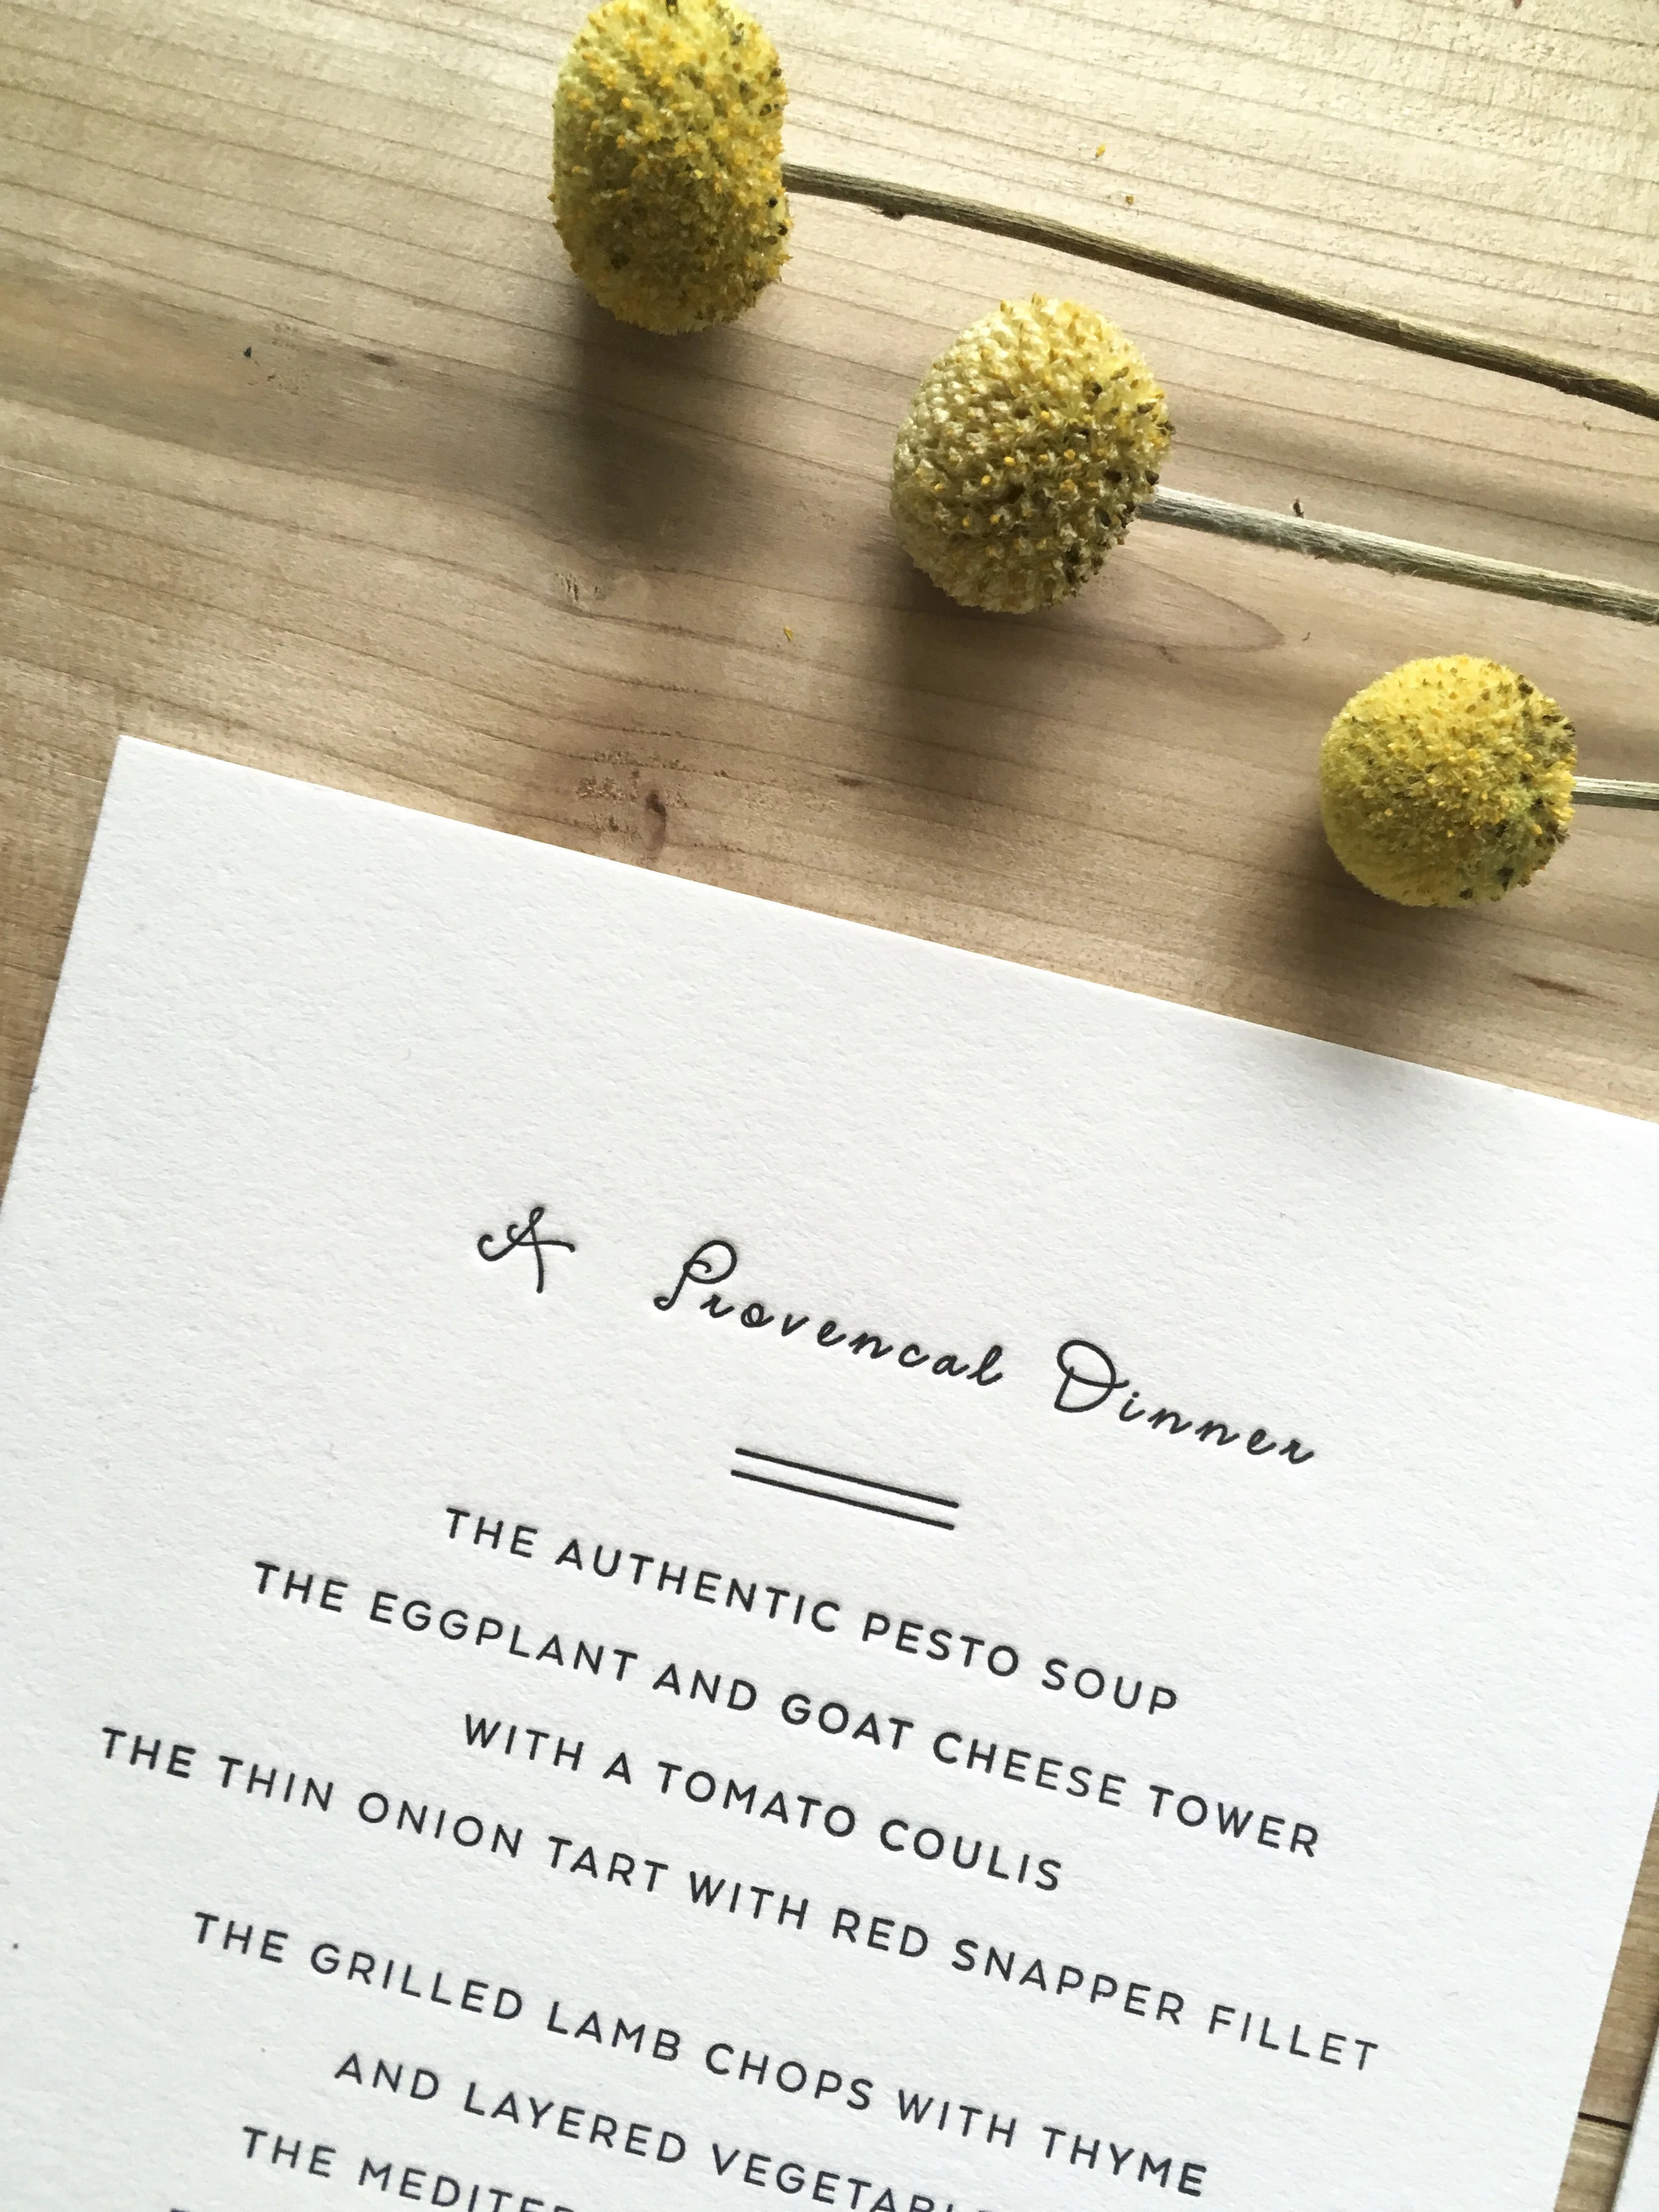 A Provencal Dinner
THE AUTHENTIC PESTO SOUP
THE EGGPLANT AND GOAT CHEESE TOWER
WITH A TOMATO COULIS
THE THIN ONION TART WITH RED SNAPPER FILLET
THE GRILLED LAMB CHOPS WITH THYME
AND LAYERED
THE